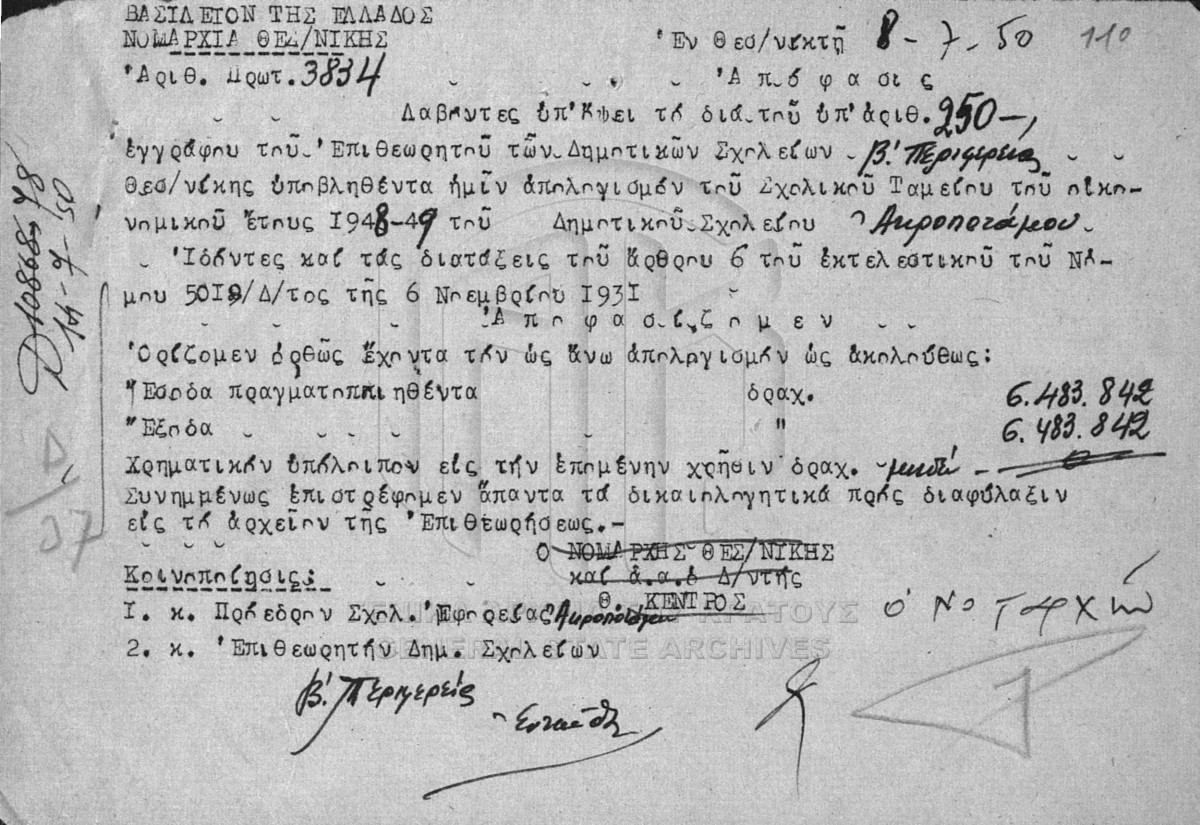 ΒΑΣΙΛΕΙΟΝ ΤΗΣ ΕΛΛΑΔΟΣ
ΝΟΜΑΡΧΙΑ ΘΕΣ/ΝΙΚΗΣ
Ἐν Θεσ/νίκῃ 8-7-50 110
Ἀριθ. Πρωτ. 3834
Ἀ π ό φ α σ ι ς
Λαβόντες ὑπ' ὄψει τό διά τοῦ ὑπ' ἀριθ. 250-,
ἐγγράφου τοῦ Ἐπιθεωρητοῦ τῶν Δημοτικῶν Σχολείων Β' Περιφερείας
Θεσ/νίκης ὑποβληθέντα ἡμῖν ἀπολογισμόν τοῦ Σχολικοῦ Ταμείου τοῦ οἰκο-
νομικοῦ ἔτους 1948-49 τοῦ Δημοτικοῦ Σχολείου Ἀκροποτάμου
Ἰδόντες καί τάς διατάξεις τοῦ ἄρθρου 6 τοῦ ἐκτελεστικοῦ τοῦ Νό-
μου 5019/Δ/τος τῆς 6 Νοεμβρίου 1931
Ἀ π ο φ α σ ί ζ ο μ ε ν
Ὁρίζομεν ὀρθῶς ἔχοντα τόν ὡς ἄνω ἀπολογισμόν ὡς ἀκολούθως:
Ἔσοδα πραγματοποιηθέντα δραχ. 6.483.842
Ἔξοδα " 6.483.842
Χρηματικόν ὑπόλοιπον εἰς τήν ἑπομένην χρῆσιν δραχ. μηδέν - 0
Συνημμένως ἐπιστρέφομεν ἅπαντα τά δικαιολογητικά πρός διαφύλαξιν
εἰς τό ἀρχεῖον τῆς Ἐπιθεωρήσεως.-
Ο ΝΟΜΑΡΧΗΣ ΘΕΣ/ΝΙΚΗΣ
καί ἀ.α.ὁ Δ/ντής
Θ. ΚΕΝΤΡΟΣ
Κοινοποίησις:
1. κ. Πρόεδρον Σχολ. Ἐφορείας Ἀκροποτάμου
2. κ. Ἐπιθεωρητήν Δημ. Σχολείων
Β' Περιφερείας
Ἐνταῦθα
ὁ Νομάρχης
Δ 108668/78
14-7-50
ΚΡΑΤΟΥΣ
GENERAL STATE ARCHIVES